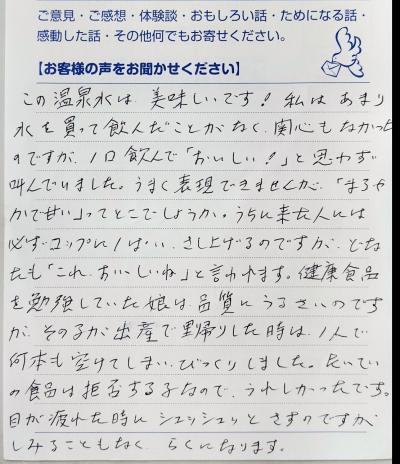 ご意見・ご感想・体験談・おもしろい話・ためになる話・
感動した話・その他何でもお寄せください。
【お客様の声をお聞かせください】
この温泉水は、美味しいです！私はあまり
水を買って飲んだことがなく、関心もなかった
のですが、1口飲んで「おいしい！」と思わず
叫んでいました。うまく表現できませんが、「まろや
かで甘い」ってとこでしょうか。うちに来た人には
必ずコップに1ぱい、さし上げるのですが、どな
たも「これ、おいしいね」と言われます。健康食品
を勉強していた娘は、品質にうるさいのです
が、そのるが出産で里帰りした時は、1人で
何本も空けてしまい、びっくりしました。たいてい
の食品は拒否する子なので、うれしかったです。
目が疲れた時にシュッシュッとさすのですが
しみることもなく、らくになります。